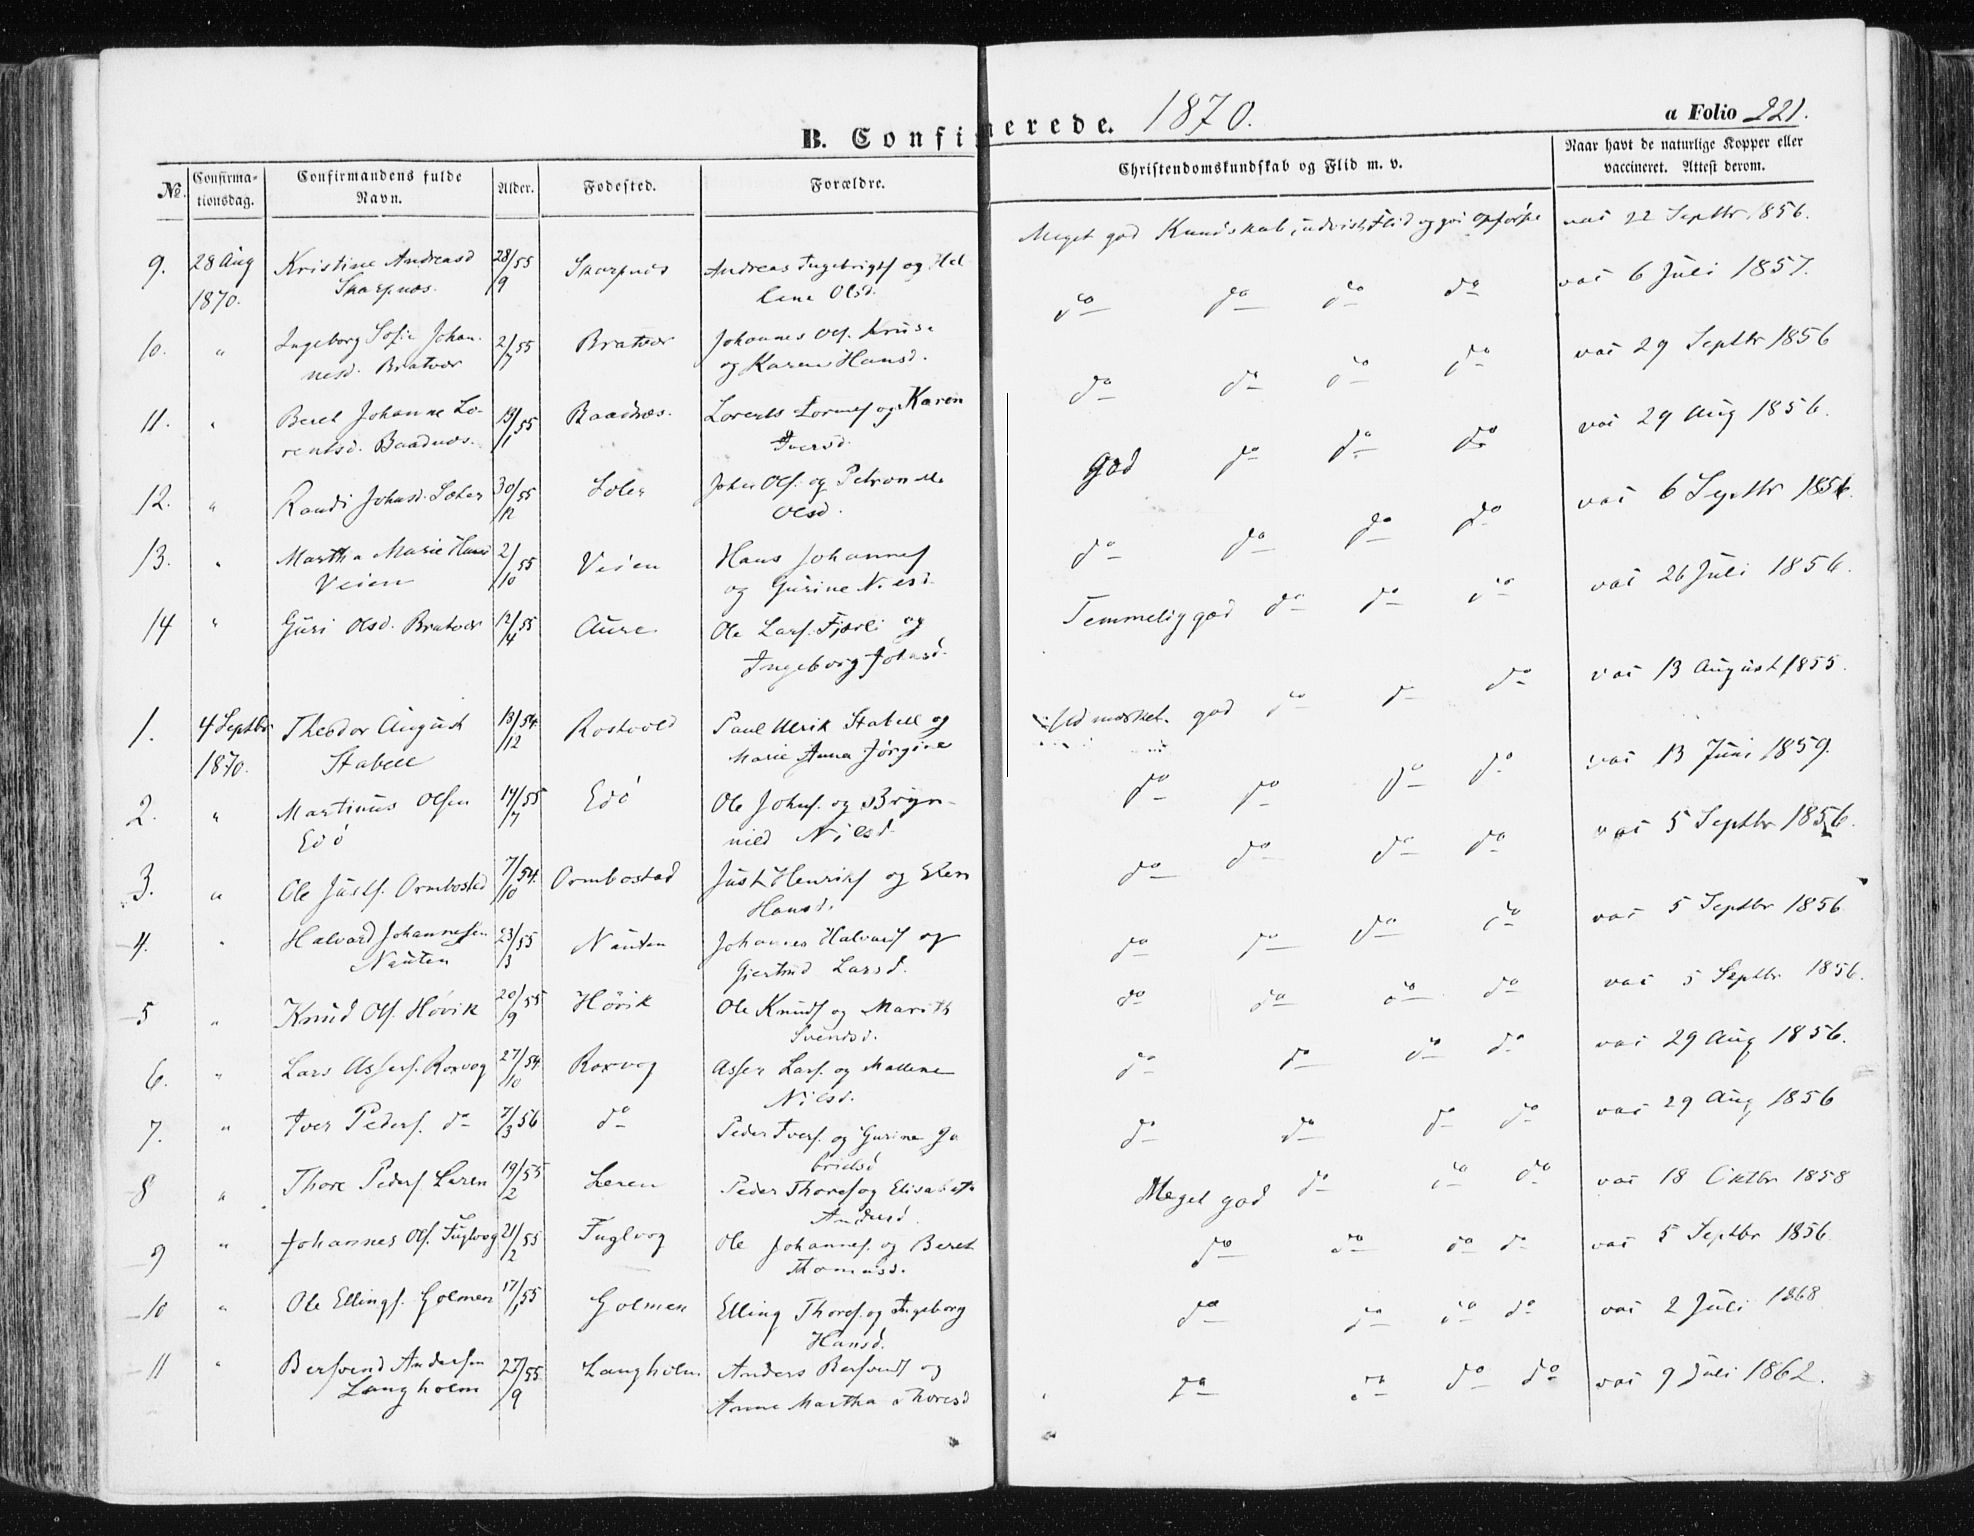 B. Confirmerede. 1870.
a Folio 221.
No. Confirmationsdag. Confirmandens fulde Navn. Alder. Fødested. Forældre. Christendomskundskab og Flid m. v. Naar havt de naturlige Kopper eller vaccineret. Attest derom.
9. 28 Aug 1870. Kristine Andreasd Skarpnæs. 28/9 55 Skarpnæs Andreas Ingebrigts og Helena Olsd. Meget god Kundskab, udvist Flid og god Opførsel vac 22 Septbr 1856.
10. " Ingeborg Sofie Johannesd. Bratvær 2/7 55 Bratvær Johannes Ols. Kruse og Karen Hansd. do do do do vac 6 Juli 1857.
11. " Beret Johanne Lorentsd. Baadnæs. 19/1 55 Baadnæs. Lorents Lornts og Karen Iversd. do do do do vac 29 Septbr 1856
12. " Randi Johnsd. Sæter 30/12 55 John Ols. og Petronelle Olsd. God do do do vac 29 Aug 1856.
13. " Martha Marie Hansd Veien 2/10 55 Veien Hans Johannes og Gurine Nilsd. do do do do vac 6 Septbr 1856.
14 " Guri Olsd. Bratvær 12/4 55 Aure Ole Lars. Fjærli og Ingeborg Johnsd. Temmelig god do do do vac 26 Juli 1856.
1. 4 Septbr 1870. Theodor August Stabell 13/12 54 Rostvold Paul Ulrik Stabell og Marie Anna Jørgine Udmærket god do do do vac 13 August 1855.
2. " Martinus Olsen Edø 14/7 55 Edø Ole Johns. og Brynnild Nilsd. do do do do vac 13 Juni 1859.
3. " Ole Justs. Ormbostad 7/10 54. Ormbostad Just Henriks og Elen Hansd. do do do do vac 5 Septbr 1856.
4. " Halvard Johannesen Nauten 23/3 55 Nauten Johannes Halvards og Gjertrud Larsd. do do do do vac 5 Septbr 1856
5 " Knud Ols. Høvik 20/9 55 Høvik Ole Knuds og Marith Svendsd. do do do do vac 5 Septbr 1856.
6. " Lars Assers. Roxvog 27/10 54 Roxvog Asser Lars. og Mallene Nilsd. do do do do vac 29 Aug 1856.
7. " Iver Peders. do 7/3 56 do Peder Ivers. og Gurine Gabrielsd do do do do vac 29 Aug 1856
8 " Thore Peders. Leren 19/2 55 Leren Peder Thores og Elisabeth Andersd. Meget god do do do vac 18 Oktbr 1858
9 " Johannes Ols. Fuglvog 21/2 55 Fuglvog Ole Johannes. og Beret Thomasd. do do do do vac 5 Septbr 1856.
10 " Ole Ellings. Golmen 17/1 55 Golmen Elling Thores. og Ingeborg Hansd. do do do do vac 2 Juli 1868
11 " Bersvend Andersen Langholm 27/9 55 Langholm Anders Bersvends og Anne Martha Thoresd do do do do vac 9 Juli 1862.